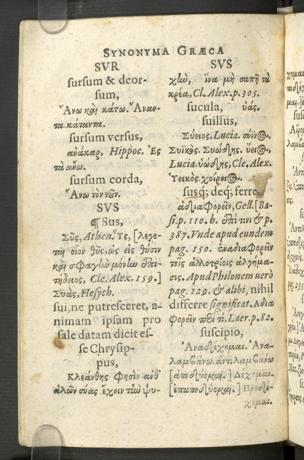 SYNONYMA GRÆCA
SVR
sursum & deor-
sum,
Ἄνω καὶ κάτω. Ἄναν-
τα κάταντα.
sursum versus,
ἀνάκαρ, Hippoc. Ἐς
τὸ ἄνω.
sursum corda,
Ἄνω τὸν νοῦν.
SVS
¶ Sus,
Σῦς, Athen. Ὗς, [λέγε-
ται οἷον θῦς, ὡς εἰς θύσιν
καὶ σφαγὴν μόνον ἐπι-
τήδειος, Cle. Alex. 159.]
Συὰς, Hesych.
sui, ne putresceret, a-
nimam ipsam pro
sale datam dicit es-
se Chrysip-
pus,
Κλεάνθης φησὶν ἀνθ'
ἁλῶν σύας ἔχειν τὴν ψυ-
SVS
χὴν, ἵνα μὴ σαπῇ τὰ
κρέα, Cl. Alex. p. 305.
sucula, ὑάς.
suillus,
Σύειος. Lucia. σύινος.
Συϊκός. Συώδης. ὕειος,
Lucia. ὑώδης, Cle. Alex.
Ὑεικὸς χοίρειος.
susq; deq; ferre,
ἀδιαφορεῖν, Gell. [Ba-
si. p. 110. b. ἐπί τινι & p.
387. Vnde apud eundem
pag. 150. ἐναδιαφορεῖν
τοῖς ἀλλοτρίοις ἀλγήμα-
σι. Apud Philonem verò
pag. 129. & alibi, nihil
differre significat. Ἀδια-
φορεῖν πρός τι, Laer. p. 82.
suscipio,
Ἀναδέχομαι. Ἀνα-
λαμβάνω. ἀντιλαμβάνω
[ἀποδέχομαι.] Δέχομαι.
χομαι.